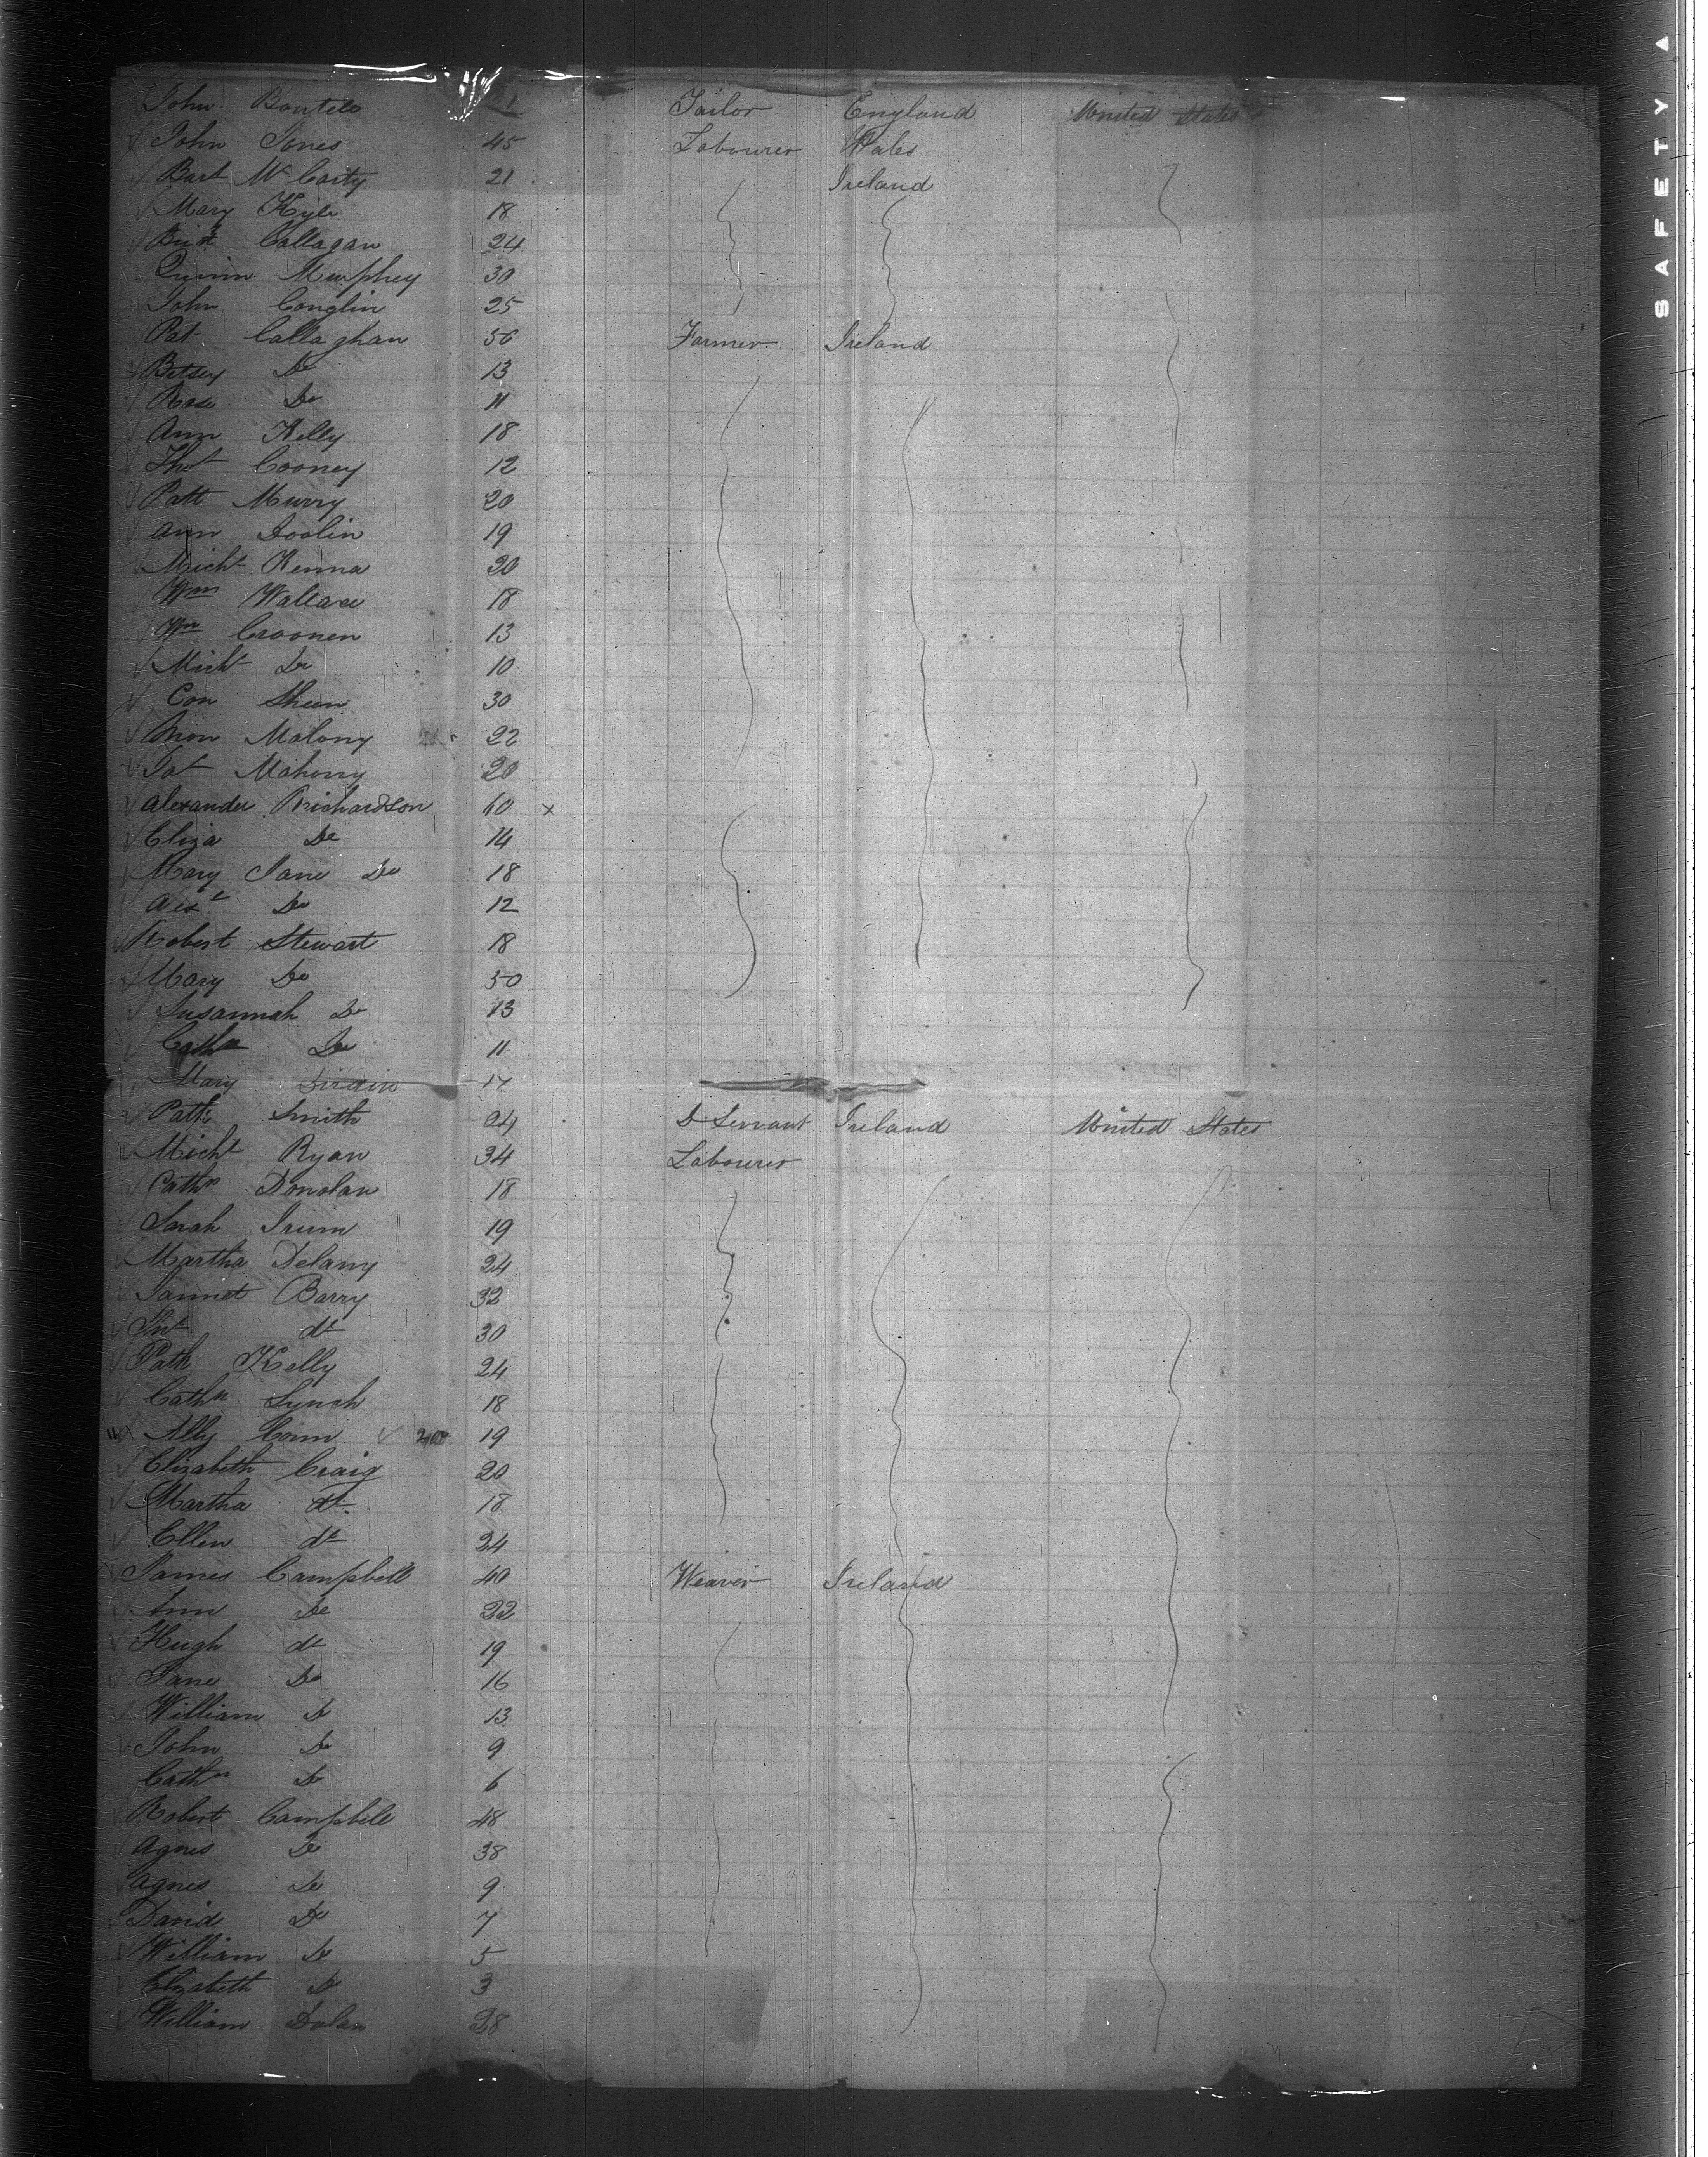 John Boutell 21 Tailor England United States
John Jones 45 Labourer Wales
Bart Mc Carty 21 Ireland
Mary Kyle 18
Brid Callagan 24
Murphey 30
John Conglin 25
Pat Callaghan 56 Farmer Ireland
Betsey Do 13
Rose Do 11
Ann Kelly 18
Thos Cooney 12
Patt Murry 20
Ann Doolin 19
Michl Kenna 20
Wm Wallace 18
Wm Croonen 13
Michl Do 10
Con Sheen 30
Malony 22
Mahony 20
Alexander Richardson 60 x
Eliza Do 14
Mary Jane Do 18
Alexr Do 12
Robert Stewart 18
Mary Do 50
Susannah Do 13
Cathn Do 11
Mary 17
Patk Smith 24 D Servant Ireland United States
Michl Ryan 34 Labourer
Cathn Donolan 18
Sarah 19
Martha Delany 24
Jannet Barry 32
do 30
Patk Kelly 24
Cathn Lynch 18
Ally Conn 19
Elizabeth Craig 20
Martha do 18
Ellen do 24
James Campbell 40 Weaver Ireland
Ann Do 22
Hugh do 19
Jane Do 16
William Do 13
John Do 9
Cathn Do 6
Robert Campbell 48
Agnes Do 38
Agnes Do 9
David Do 7
William Do 5
Elizabeth Do 3
William Dolan 28
SAFETY